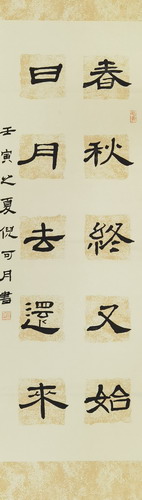 春秋終又始
日月去還來
壬寅之夏倪可月書